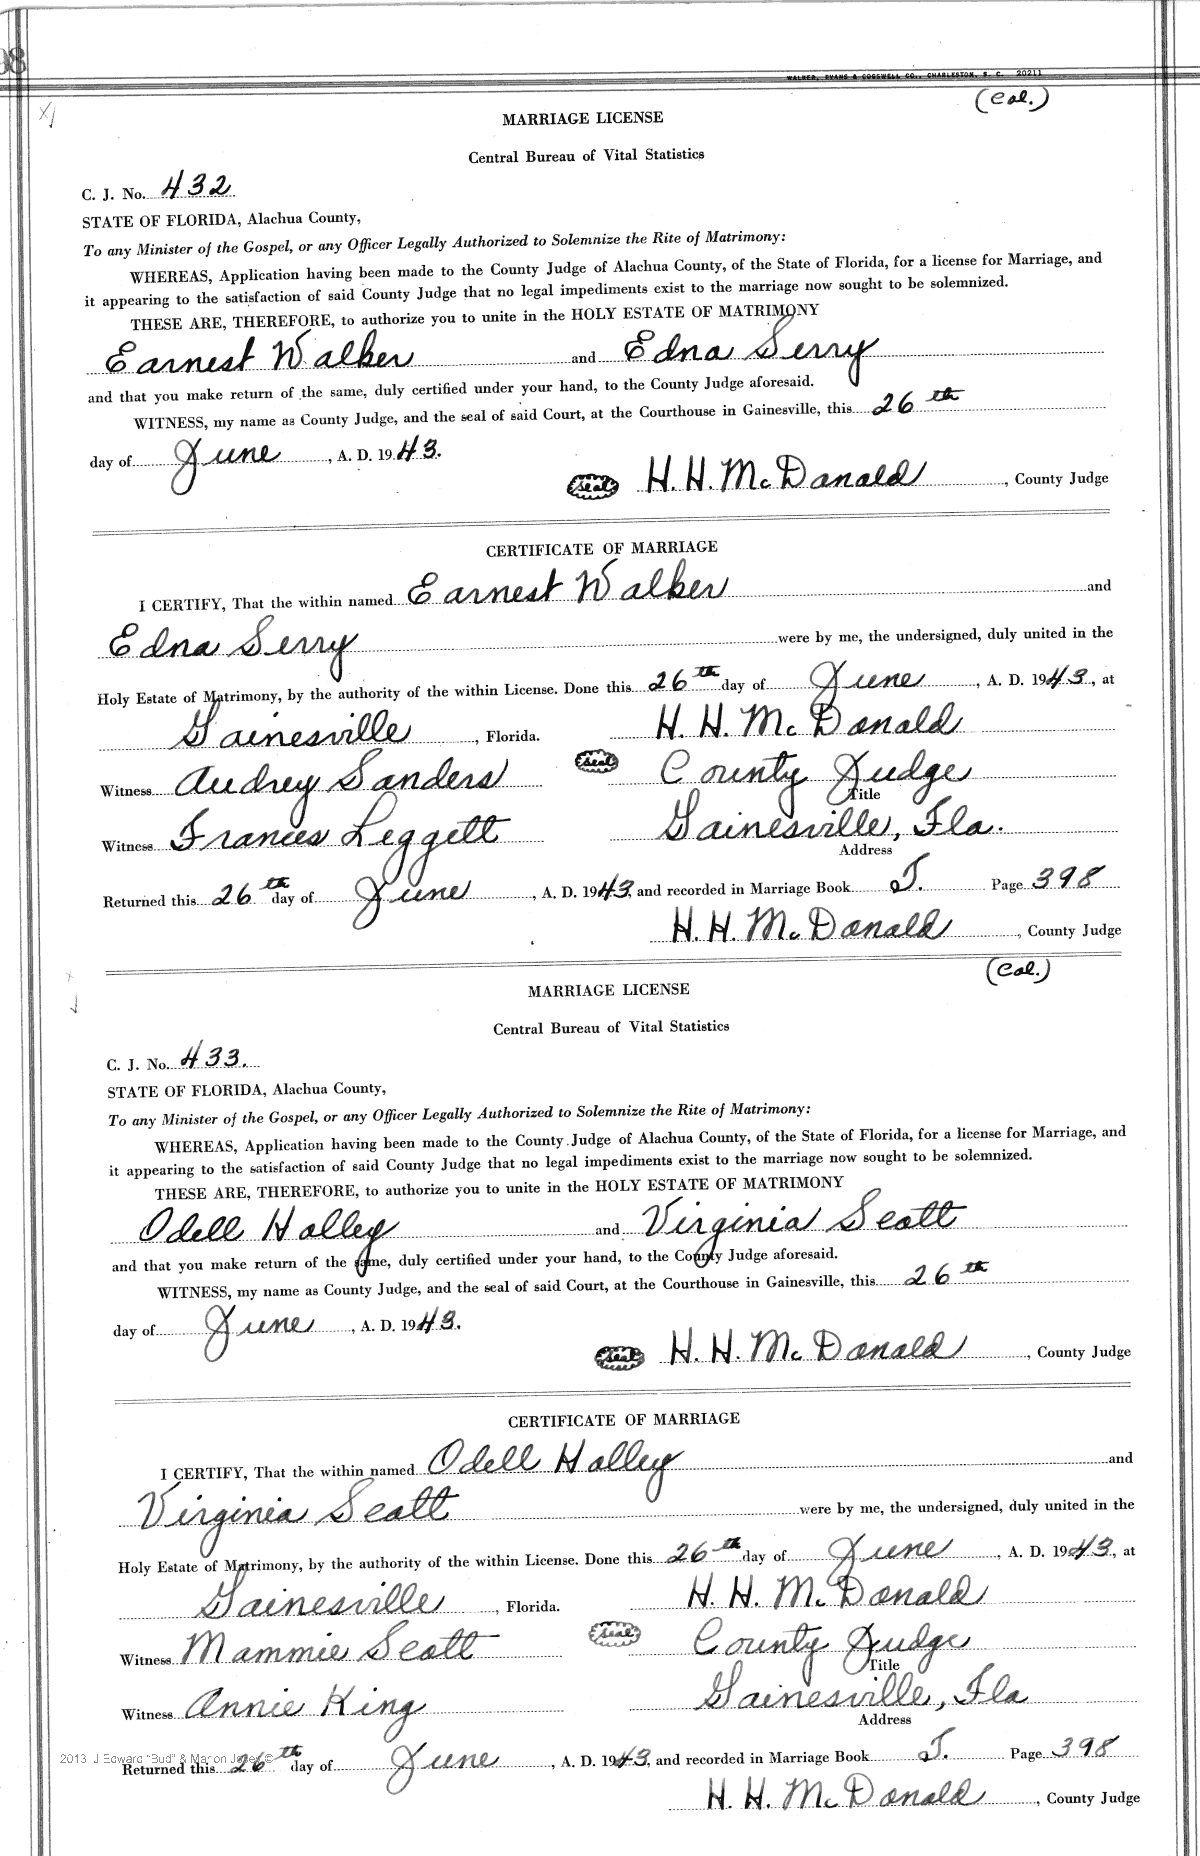 98
WALKER, EVANS & COGSWELL CO., CHARLESTON, S. C. 20211
(Col.)
MARRIAGE LICENSE
Central Bureau of Vital Statistics
C. J. No. 432
STATE OF FLORIDA, Alachua County,
To any Minister of the Gospel, or any Officer Legally Authorized to Solemnize the Rite of Matrimony:
WHEREAS, Application having been made to the County Judge of Alachua County, of the State of Florida, for a license for Marriage, and
it appearing to the satisfaction of said County Judge that no legal impediments exist to the marriage now sought to be solemnized.
THESE ARE, THEREFORE, to authorize you to unite in the HOLY ESTATE OF MATRIMONY
Earnest Walker and Edna Serry
and that you make return of the same, duly certified under your hand, to the County Judge aforesaid.
WITNESS, my name as County Judge, and the seal of said Court, at the Courthouse in Gainesville, this 26th
day of June, A. D. 1943.
seal H. H. McDonald, County Judge
CERTIFICATE OF MARRIAGE
I CERTIFY, That the within named Earnest Walker and
Edna Serry were by me, the undersigned, duly united in the
Holy Estate of Matrimony, by the authority of the within License. Done this 26th day of June, A. D. 1943, at
Gainesville, Florida. H. H. McDonald
Witness Audrey Sanders seal County Judge
Title
Witness Frances Leggett Gainesville, Fla.
Address
Returned this 26th day of June, A. D. 1943, and recorded in Marriage Book J. Page 398
H. H. McDonald, County Judge
(Col.)
MARRIAGE LICENSE
Central Bureau of Vital Statistics
C. J. No. 433.
STATE OF FLORIDA, Alachua County,
To any Minister of the Gospel, or any Officer Legally Authorized to Solemnize the Rite of Matrimony:
WHEREAS, Application having been made to the County Judge of Alachua County, of the State of Florida, for a license for Marriage, and
it appearing to the satisfaction of said County Judge that no legal impediments exist to the marriage now sought to be solemnized.
THESE ARE, THEREFORE, to authorize you to unite in the HOLY ESTATE OF MATRIMONY
Odell Holley and Virginia Scott
and that you make return of the same, duly certified under your hand, to the County Judge aforesaid.
WITNESS, my name as County Judge, and the seal of said Court, at the Courthouse in Gainesville, this 26th
day of June, A. D. 1943.
seal H. H. McDonald, County Judge
CERTIFICATE OF MARRIAGE
I CERTIFY, That the within named Odell Holley and
Virginia Scott were by me, the undersigned, duly united in the
Holy Estate of Matrimony, by the authority of the within License. Done this 26th day of June, A. D. 1943, at
Gainesville, Florida. H. H. McDonald
Witness Mammie Scott seal County Judge
Title
Witness Annie King Gainesville, Fla
Address
2013 J Edward "Bud" & Marion Jones ©
Returned this 26th day of June, A. D. 1943, and recorded in Marriage Book J. Page 398
H. H. McDonald, County Judge